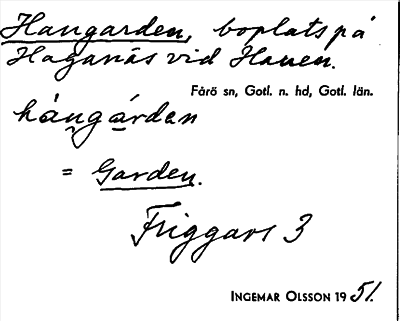 Hangarden, boplats på
Haganäs vid Hauen.
Fårö sn, Gotl. n. hd, Gotl. län.
hángárdan
= Garden.
Friggars 3
INGEMAR OLSSON 19 51.